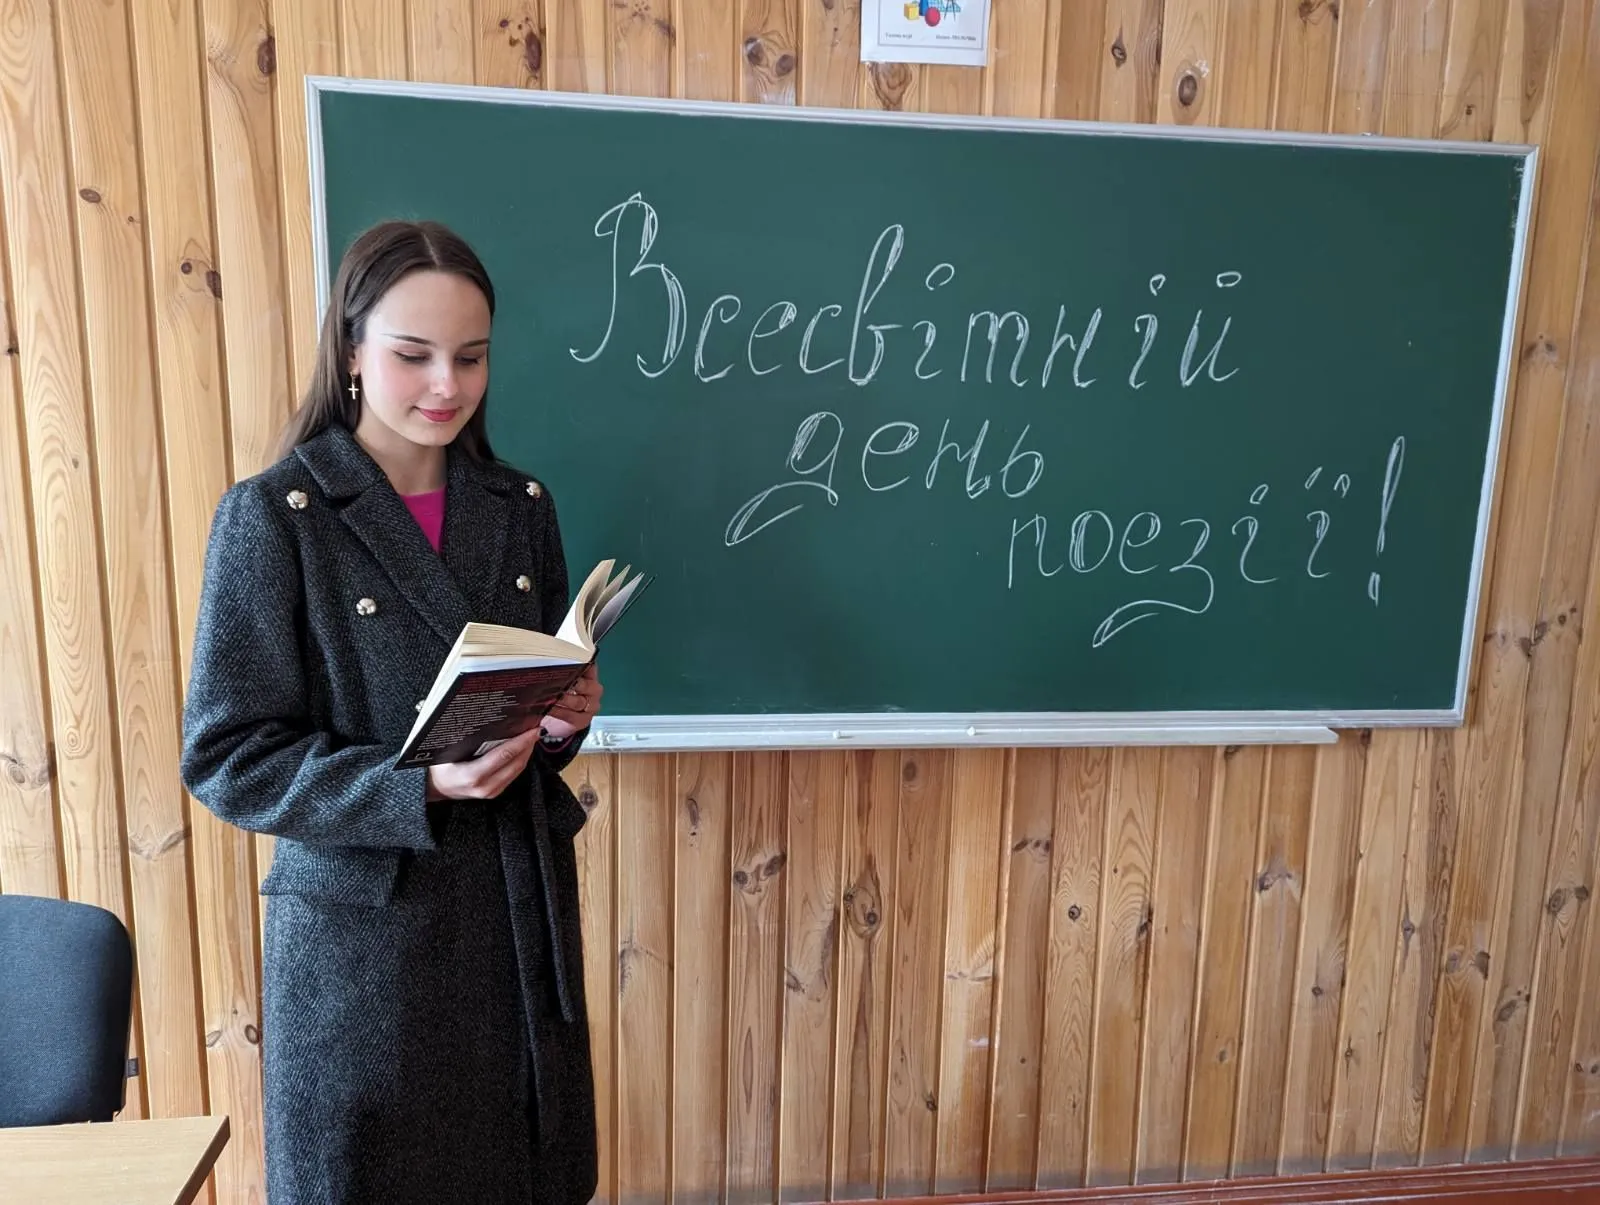 Всесвітній
день
поезії!